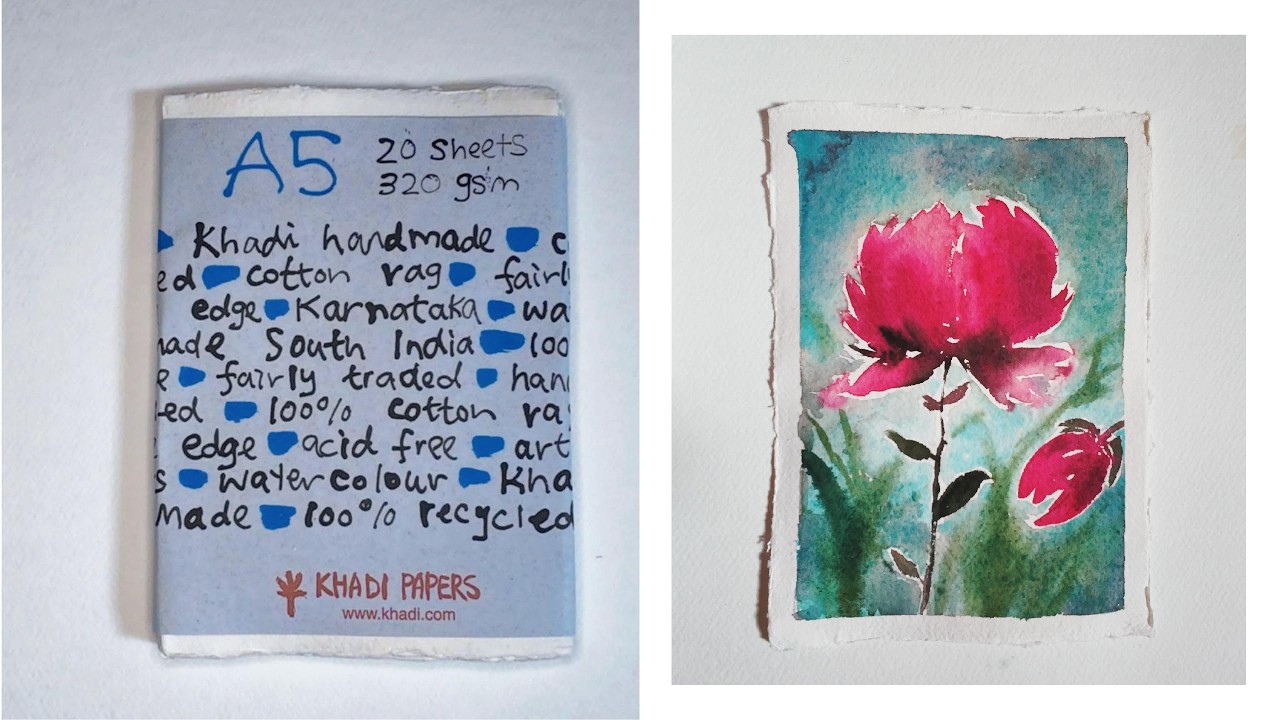 A5
20 sheets
320 gsm
Khadi handmade c
ed cotton rag fairl
edge Karnataka wa
made South India 100
e fairly traded han
ed 100% cotton ra
edge acid free art
s watercolour Kha
made 100% recycled
KHADI PAPERS
www.khadi.com